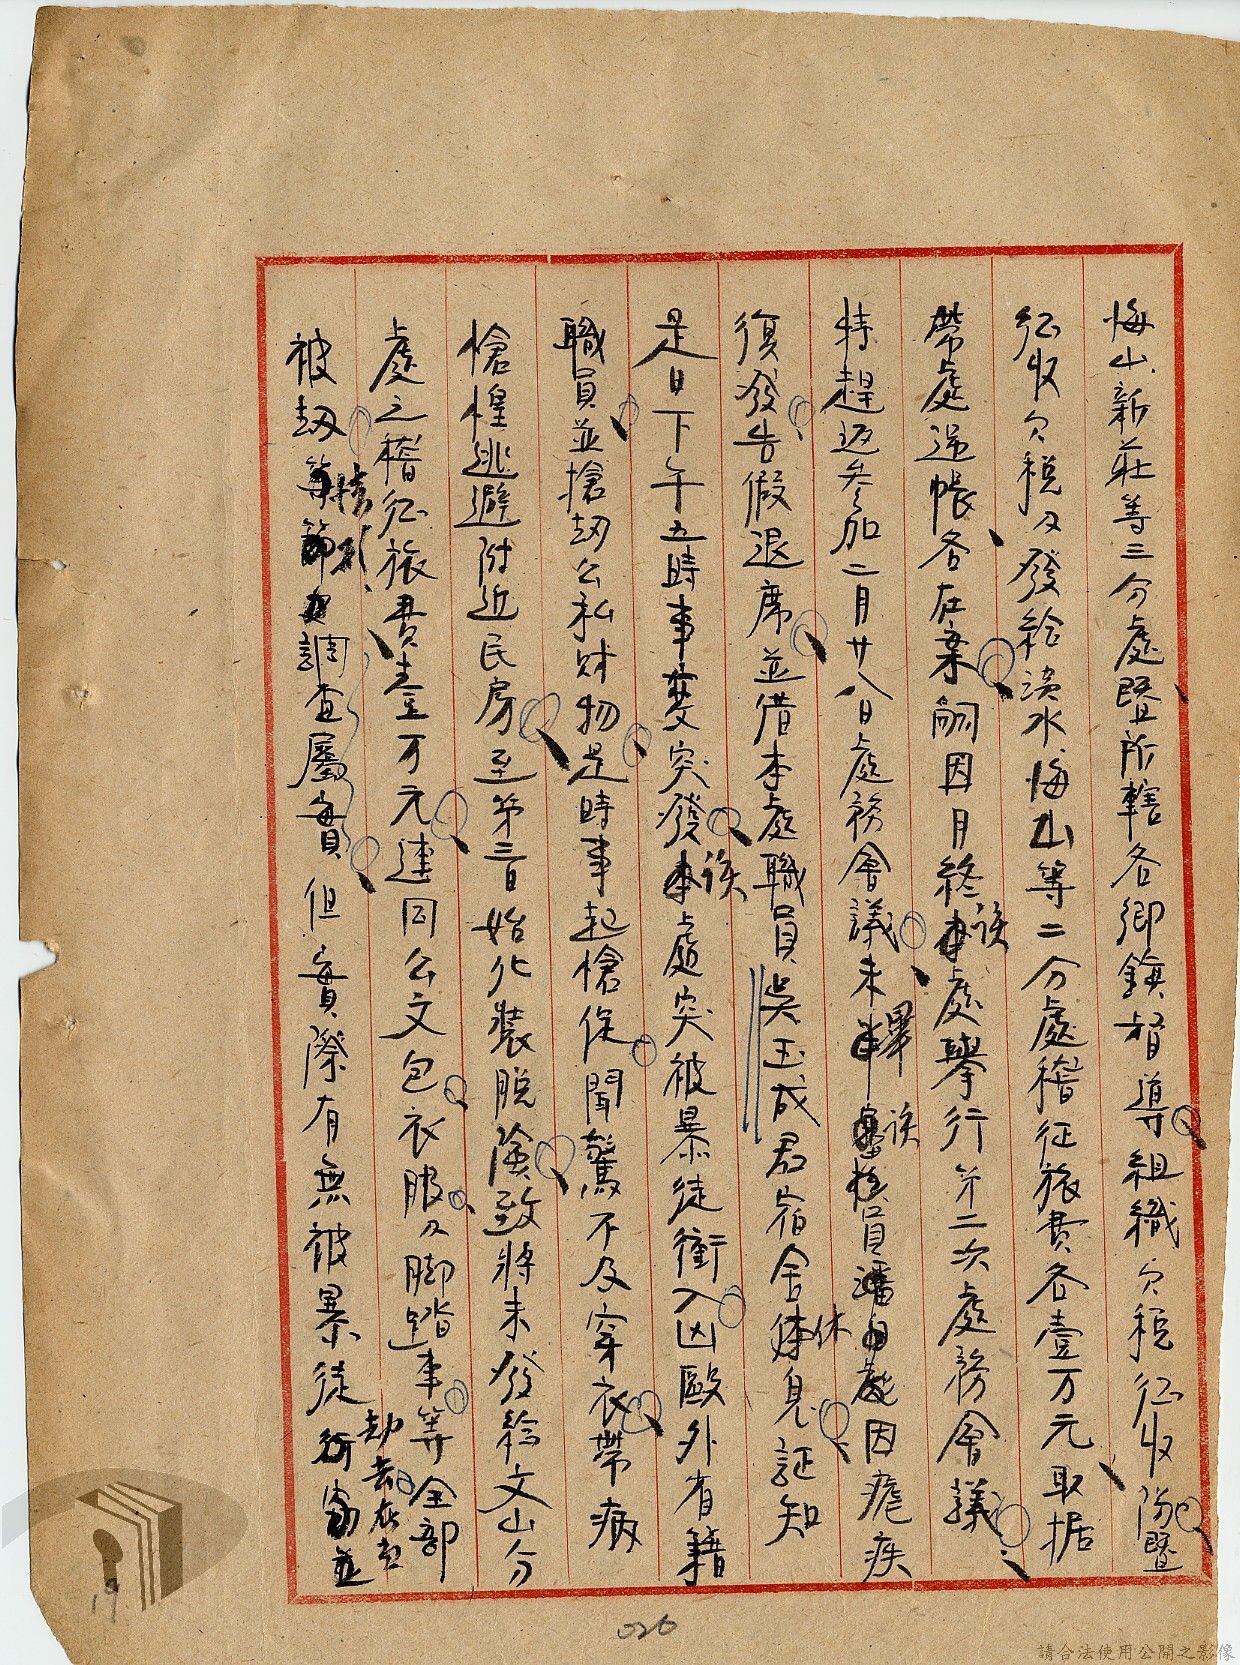 海山新莊等三分處暨所轄各鄉鎮督導組織欠稅征收隊暨
征收欠稅及發給淡水海山等二分處稽征旅費各壹万元取据
帶處送帳各在案嗣因月終該處舉行第二次處務會議
特趕返參加二月廿八日處務會議未畢該員因瘧疾
復發告假退席並借本處職員吳玉成君宿舍休息証知
是日下午五時事變突發該處突被暴徒衝入凶毆外省籍
職員並搶劫公私財物是時事起愴促聞驚不及穿衣帶病
愴惶逃避附近民房至第三日始化裝脫險致將未發給文山分
處之稽征旅費壹万元連同公文包衣服及脚踏車等全部
被劫情形調查屬實但實際有無被暴徒劫去
026
19
請合法使用公開之影像